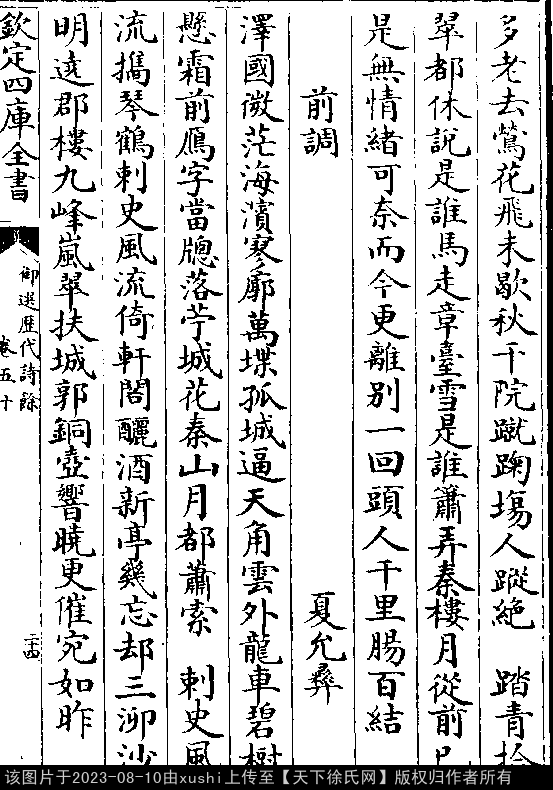 多老去鶯花飛未歇秋千院蹴踘場人蹤絶　踏青拾
翠都休說是誰馬走章臺雪是誰簫弄秦樓月從前已
是無情緒可奈而今更離別一回頭人千里腸百結
前調　夏允彝
澤國微茫海濱寒廓萬堞孤城逼天角雲外龍車碧樹
懸霜前鴈字當牕落苧城花秦山月都蕭索　刺史風
流擕琴鶴刺史風流倚軒閣釃酒新亭幾忘却三泖沙
明遶郡樓九峰嵐翠扶城郭銅壺響曉更催宛如昨
欽定四庫全書
御選歷代詩餘
卷五十
二十四
该图片于2023-08-10由xushi上传至【天下徐氏网】版权归作者所有